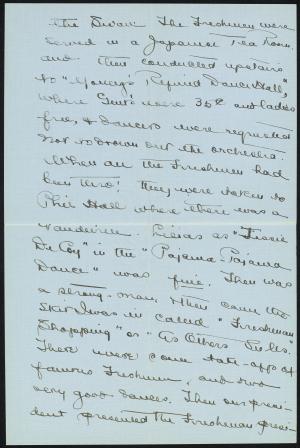 the Swan. The Freshmen were
served in a Japanese Tea Room,
and then conducted upstairs
to " Refined Dance Hall",
where Gent's were 35¢ and ladies
free, & dancers were requested
not to drown out the orchestra.
When all the Freshmen had
been thro', they were taken to
Phil Hall where there was a
vaudeville. as "
De Coy" in the "Pajama-Pajama
Dance" was fine. Then was
a strong-man, & then came the
skit I was in called "Freshman
Shopping" or "As Others See Us."
There were some take-offs of
famous Freshmen, and two
very good dances. Then our presi-
dent presented the Freshman presi-